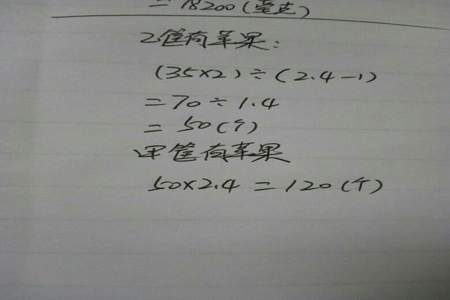 =18200(毫克)
乙筐有苹果:
(35×2)÷(2.4-1)
=70÷1.4
=50(个)
甲筐有苹果
50×2.4=120(个)